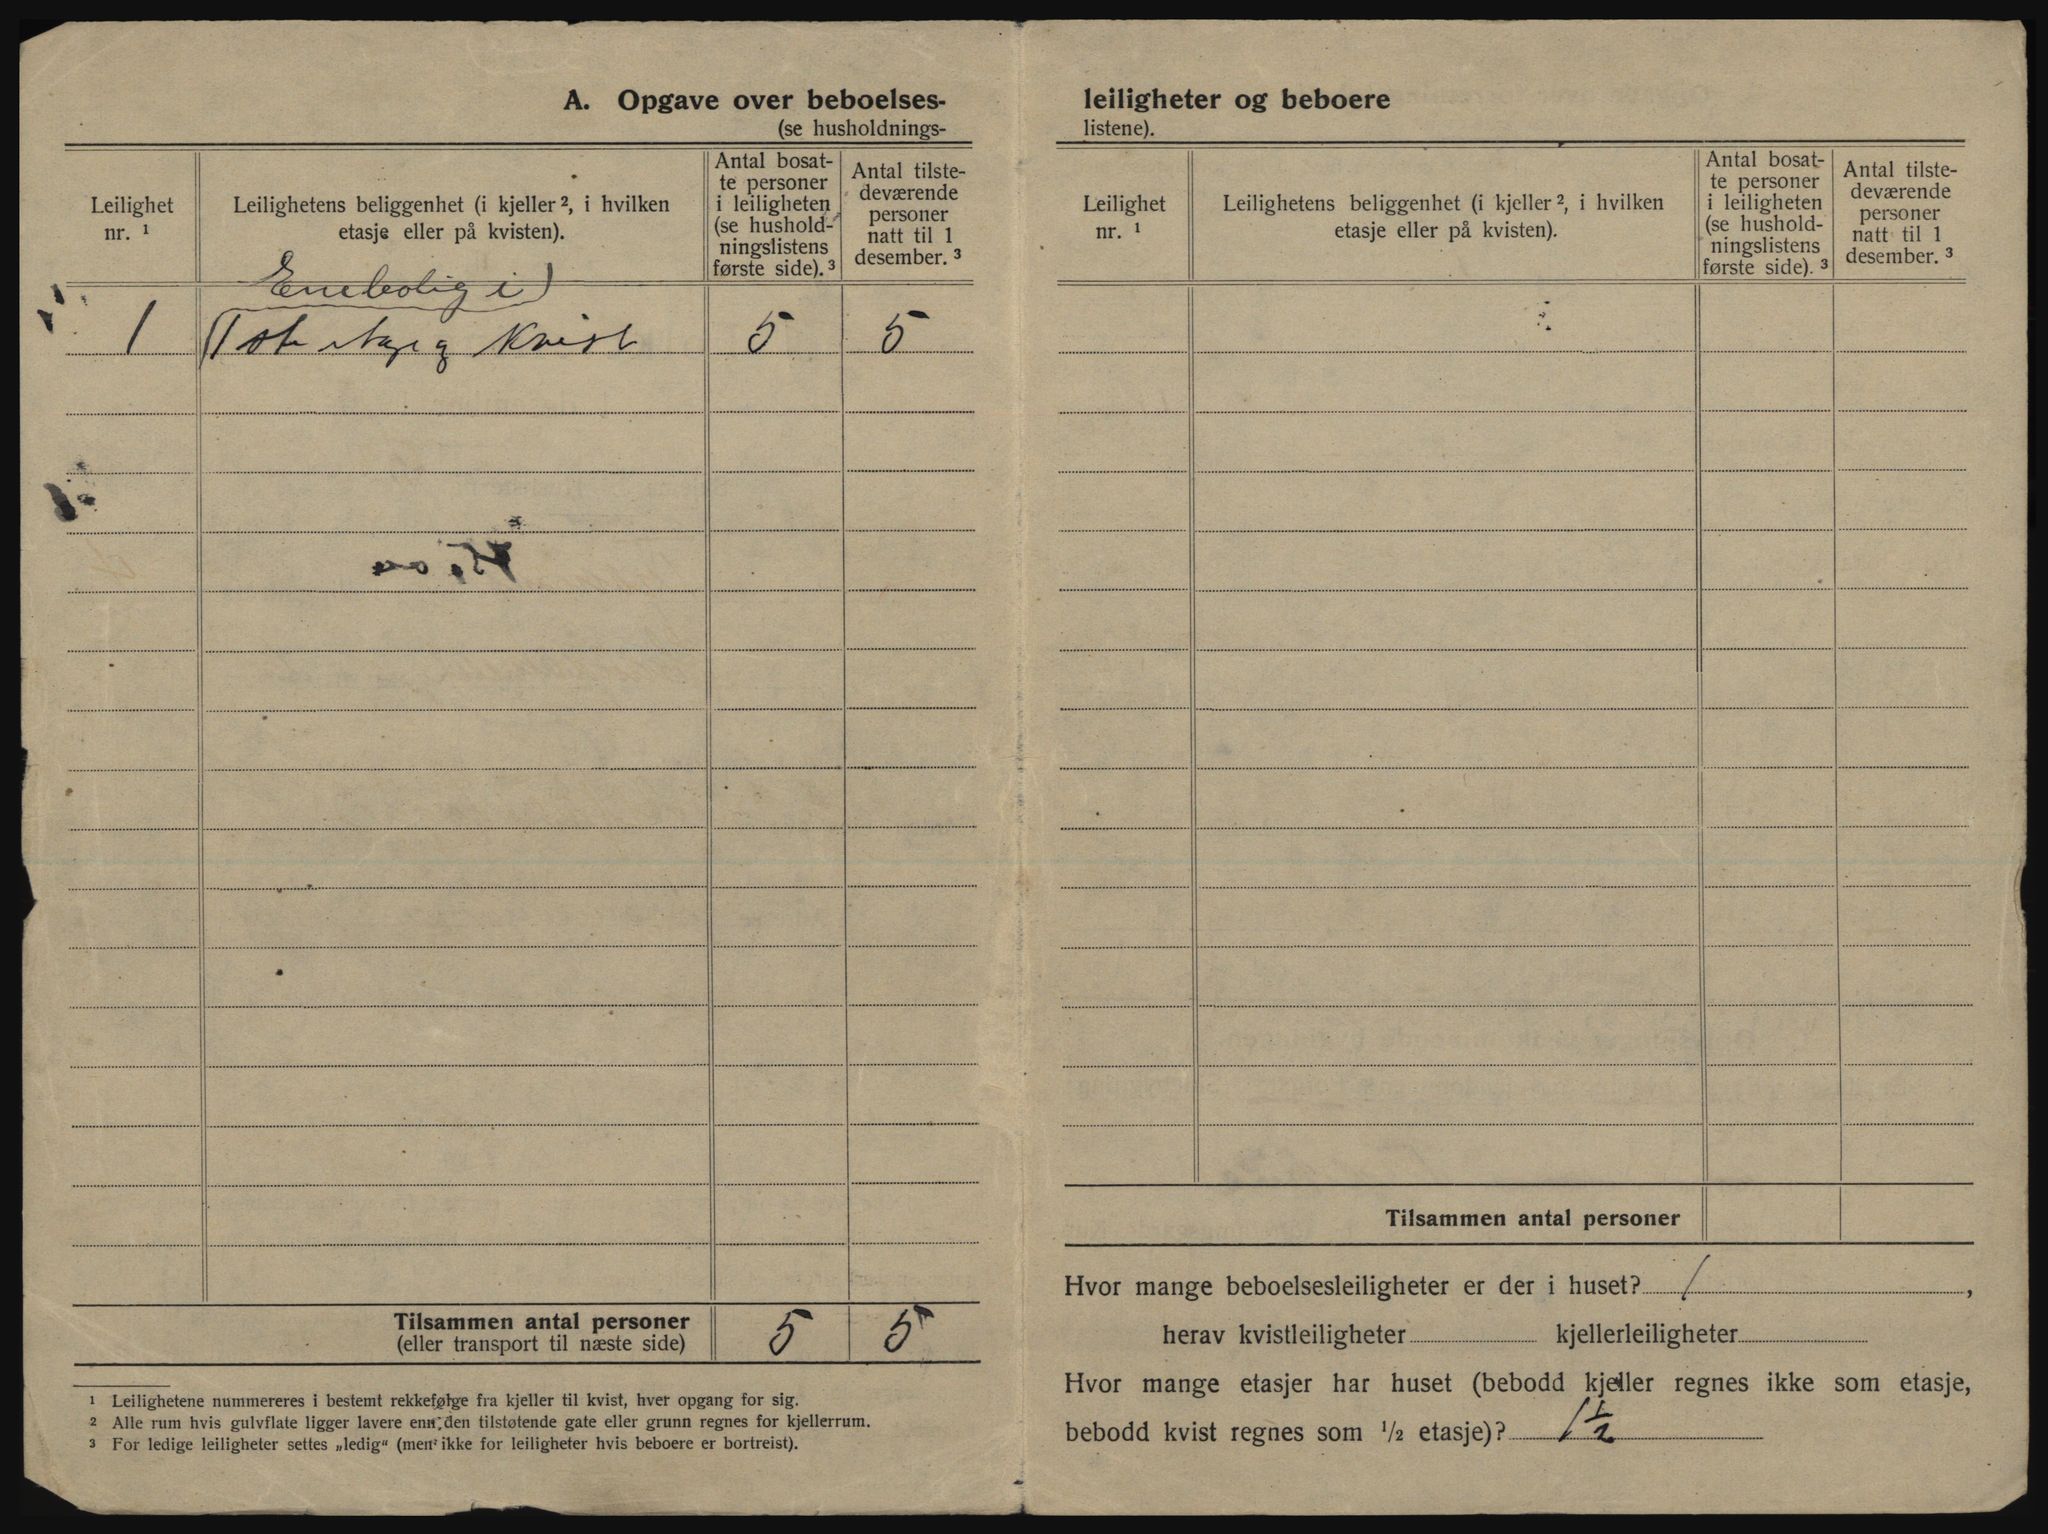 A. Opgave over beboelses-
(se husholdnings-
Leilighet
nr. ¹
Leilighetens beliggenhet (i kjeller ², i hvilken
etasje eller på kvisten).
Antal bosat-
te personer
i leiligheten
(se hushold-
ningslistens
første side). ³
Antal tilste-
deværende
personer
natt til 1
desember. ³
Enebolig i
1 1ste etage og Kvist 5 5
Tilsammen antal personer 5 5
(eller transport til næste side)
¹ Leilighetene nummereres i bestemt rekkefølge fra kjeller til kvist, hver opgang for sig.
² Alle rum hvis gulvflate ligger lavere enn den tilstøtende gate eller grunn regnes for kjellerrum.
³ For ledige leiligheter settes „ledig“ (men ikke for leiligheter hvis beboere er bortreist).
leiligheter og beboere
listene).
Leilighet
nr. ¹
Leilighetens beliggenhet (i kjeller ², i hvilken
etasje eller på kvisten).
Antal bosat-
te personer
i leiligheten
(se hushold-
ningslistens
første side). ³
Antal tilste-
deværende
personer
natt til 1
desember. ³
Tilsammen antal personer
Hvor mange beboelsesleiligheter er der i huset? 1 ,
herav kvistleiligheter kjellerleiligheter
Hvor mange etasjer har huset (bebodd kjeller regnes ikke som etasje,
bebodd kvist regnes som ½ etasje)? 1 ½